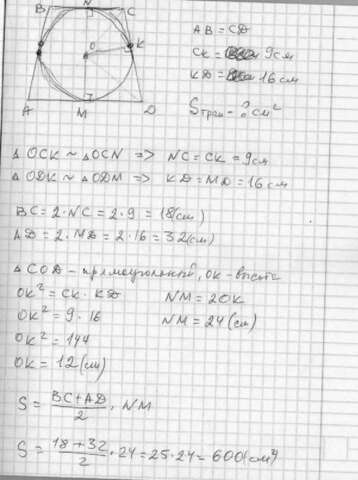 B N C
O K
A M D
AB = CD
CK = 9см
KD = 16 см
Sтрап - ? см²
△ OCK ~ △OCN => NC = CK = 9см
△ ODK ~ △ODM => KD = MD = 16 см
BC = 2·NC = 2·9 = 18(см)
AD = 2·MD = 2·16 = 32(см)
△ COD - прямоугольный, OK - высота
OK² = CK·KD NM = 2OK
OK² = 9·16 NM = 24 (см)
OK² = 144
OK = 12 (см)
S = BC + AD / 2 · NM
S = 18 + 32 / 2 · 24 = 25·24 = 600(см²)